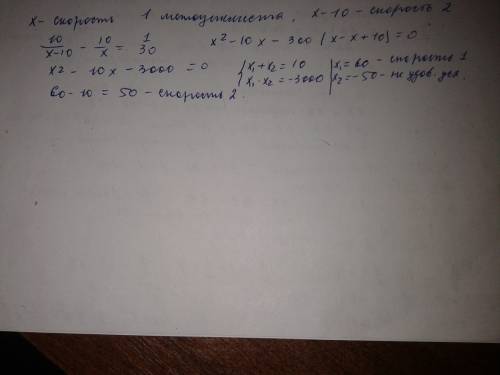 x - скорость 1 мотоциклиста, x-10 - скорость 2
10/(x-10) - 10/x = 1/30 x² - 10x - 300 (x - x + 10) = 0
x2 - 10x - 3000 = 0 { x₁ + x₂ = 10 | x₁ = 60 - скорость 1
{ x₁ · x₂ = -3000 | x₂ = -50 - не удов. усл.
60 - 10 = 50 - скорость 2.